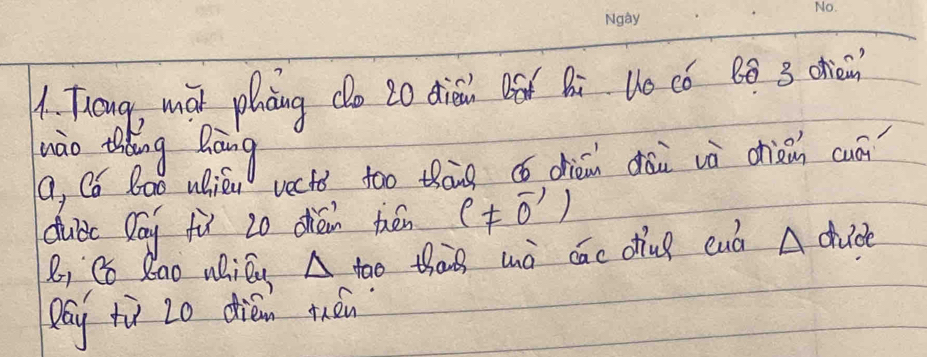 Ngày No.
1. Trong mặt phẳng cho 20 điểm bất kì. Ko có bộ 3 điểm
nào thẳng hàng
a, Có bao nhiêu vectơ tạo thành có điểm đầu và điểm cuối
được lấy từ 20 điểm trên (≠ 0⃗)
b, Có bao nhiêu Δ tạo thành mà các đỉnh của Δ được
lấy từ 20 điểm trên